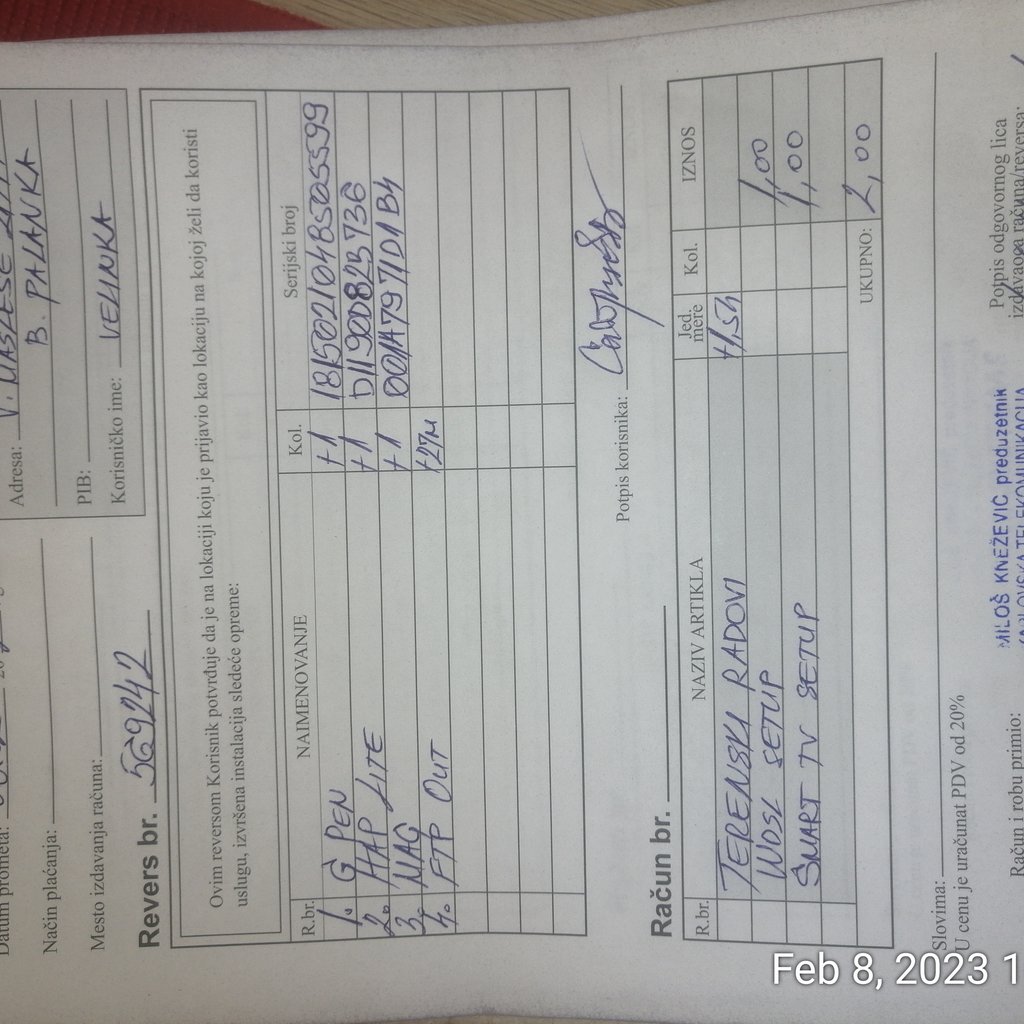 Adresa: V. MASLEŠE
B. PALANKA
PIB:
Korisničko ime: VELINKA
Datum prometa:
Način plaćanja:
Mesto izdavanja računa:
Revers br. 569242
Ovim reversom Korisnik potvrđuje da je na lokaciji koju je prijavio kao lokaciju na kojoj želi da koristi
uslugu, izvršena instalacija sledeće opreme:
R.br. NAIMENOVANJE Kol. Serijski broj
1. G PEN +1 18150210485055599
2. HAP LITE +1 D1190D823736
3. MAG +1 001A7971D1B4
4. FTP OUT +27M
Potpis korisnika:
Račun br.
R.br. NAZIV ARTIKLA Jed. mere Kol. IZNOS
TERENSKI RADOVI +1,5h
WDSL SETUP 1,00
SMART TV SETUP 1,00
UKUPNO: 2,00
Slovima:
U cenu je uračunat PDV od 20%
Račun i robu primio:
MILOŠ KNEŽEVIĆ preduzetnik
Potpis odgovornog lica
izdavaoca računa/reversa:
Feb 8, 2023 1